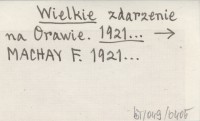 Wielkie zdarzenie
na Orawie. 1921... →
MACHAY F. 1921...